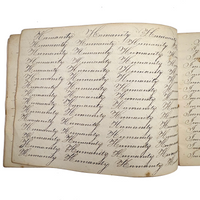 Humanity Humanity Humanity
Humanity Humanity Humanity
Humanity Humanity Humanity
Humanity Humanity Humanity
Humanity Humanity Humanity
Humanity Humanity Humanity
Humanity Humanity Humanity
Humanity Humanity Humanity
Humanity Humanity Humanity
Humanity Humanity Humanity
Humanity Humanity Humanity
Humanity Humanity Humanity
Humanity Humanity Humanity
Humanity Humanity Humanity
Humanity Humanity Humanity